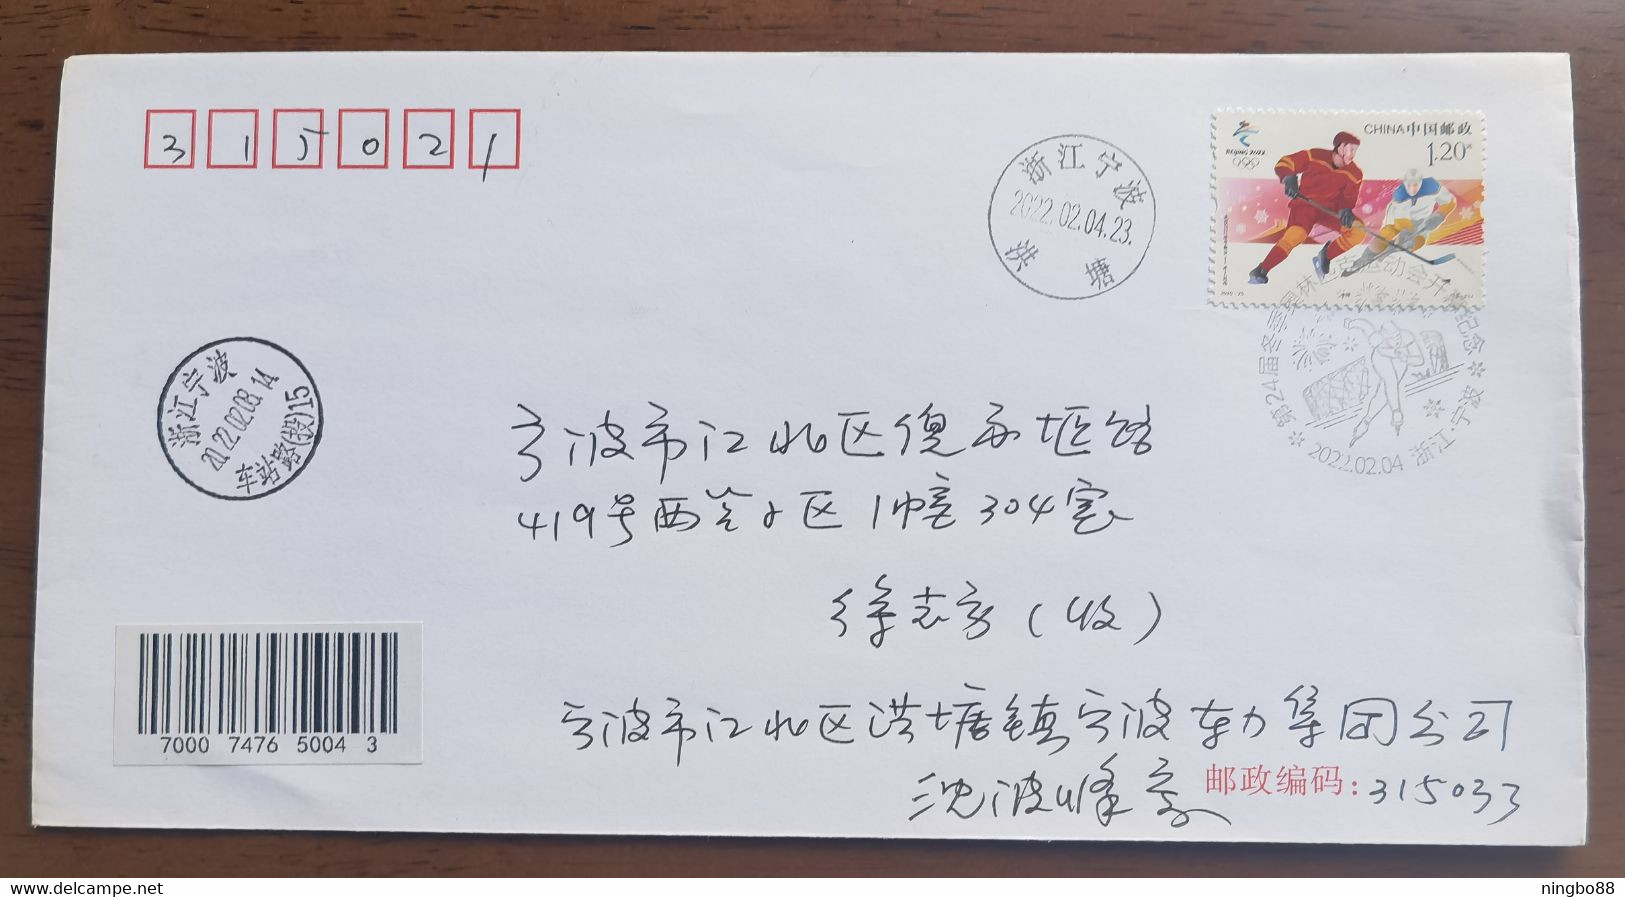 315021
浙江宁波
2022.02.04.23.
洪塘
BEIJING 2022
CHINA中国邮政
1.20元
第24届冬季奥林匹克运动会开幕纪念
2022.02.04 浙江·宁波
浙江宁波
2022.02.08.14
车站路(投)15
宁波市江北区倪家堰路
419号西公小区1幢304室
徐志方(收)
宁波市江北区洪塘镇宁波东力集团公司
沈波峰寄
邮政编码:315033
7000 7476 5004 3
delcampe.net
ningbo88